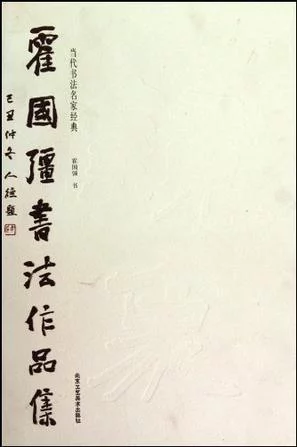 当代书法名家经典
霍国强 书
霍國彊書法作品集
己丑仲冬人綞題
北京工艺美术出版社